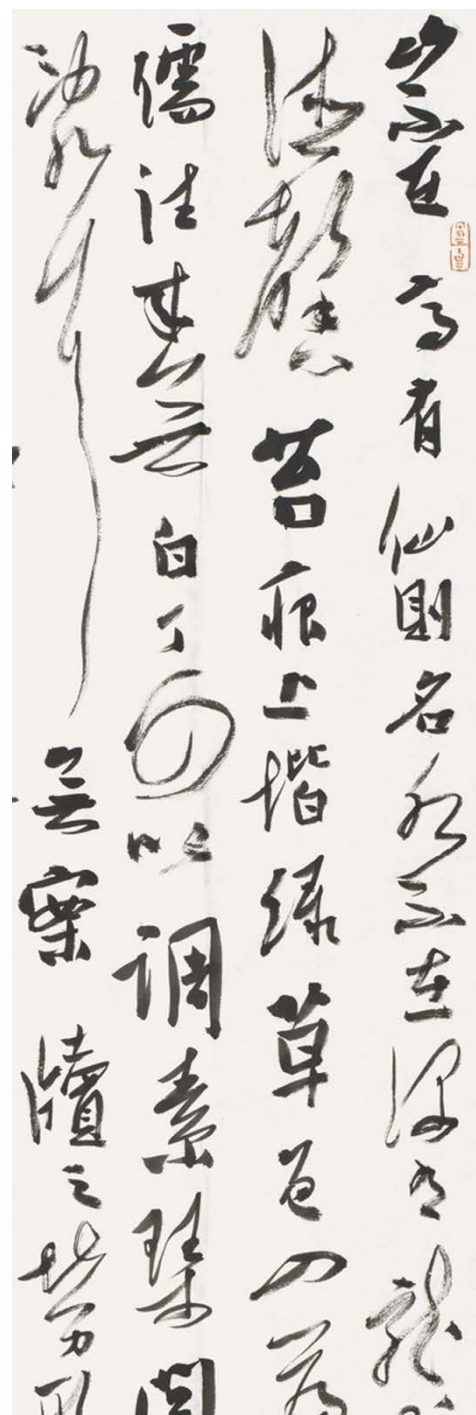 山不在高有仙則名水不在深有龍
德馨苔痕上堦綠草色入
儒往来無白丁可以調素琴
亂耳無案牘之勞